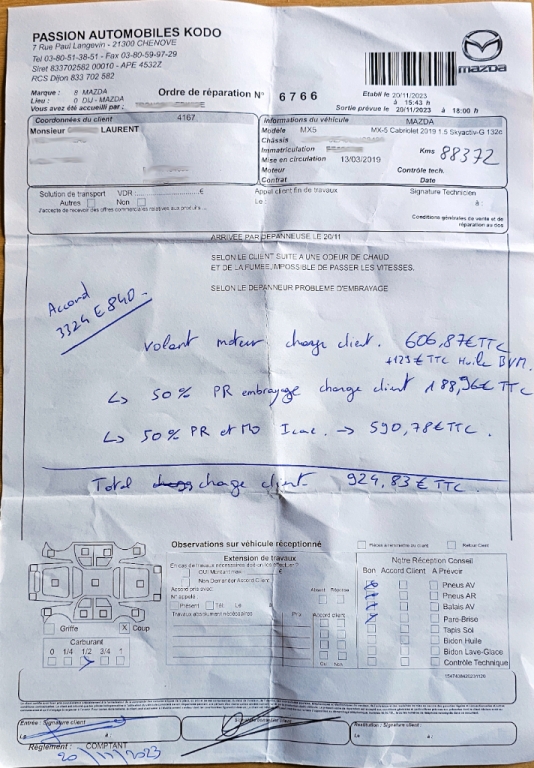 PASSION AUTOMOBILES KODO
7 Rue Paul Langevin - 21300 CHENOVE
Tel 03-80-51-38-51 - Fax 03-80-59-97-29
Siret 833702582 00010 - APE 4532Z
RCS Dijon 833 702 582
mazda
Marque : 8 MAZDA
Lieu : 0 DIJ - MAZDA
Vous avez été accueilli par :
Ordre de réparation N° 6766
Etabli le 20/11/2023
à 15:43 h
Sortie prévue le 20/11/2023 à 18:00 h
Coordonnées du client 4167
Monsieur LAURENT
Informations du véhicule MAZDA
Modèle MX5 MX-5 Cabriolet 2019 1.5 Skyactiv-G 132c
Châssis
Immatriculation Kms 88372
Mise en circulation 13/03/2019
Moteur Contrôle tech.
Contrat Date
Solution de transport VDR : €
Autres Non
J'accepte de recevoir des offres commerciales relatives aux produits...
Appel client fin de travaux
Le : à
Signature Technicien
à :
Conditions générales de vente et de
réparation au dos
ARRIVEE PAR DEPANNEUSE LE 20/11
SELON LE CLIENT SUITE A UNE ODEUR DE CHAUD
ET DE LA FUMEE, IMPOSSIBLE DE PASSER LES VITESSES.
SELON LE DEPANNEUR PROBLEME D'EMBRAYAGE
Accord
3324 E 840
volant moteur charge client. 606,87€TTC
+129€TTC Huile BVM.
↳ 50% PR embrayage charge client 188,96€TTC
↳ 50% PR et MO → 590,78€TTC.
Total charge client 924,83€TTC.
Observations sur véhicule réceptionné
Extension de travaux
En cas de travaux nécessaires doit-on les effectuer ?
OUI Montant max €
Non Demander Accord Client
Accord pris avec
N° appelé
Présent Tél. Le à
Travaux absolument nécessaires Prix
Accord Client
Oui Non
Pièces à remettre au client Refus Client
Notre Réception Conseil
Bon Accord Client A Prévoir
Pneus AV
Pneus AR
Balais AV
Pare-Brise
Tapis Sol
Bidon Huile
Bidon Lave-Glace
Contrôle Technique
Griffe X Coup
Carburant
0 1/4 1/2 3/4 1
Entrée : Signature client
Le à
Restitution : Signature client :
Le à
Règlement : COMPTANT
20/11/2023